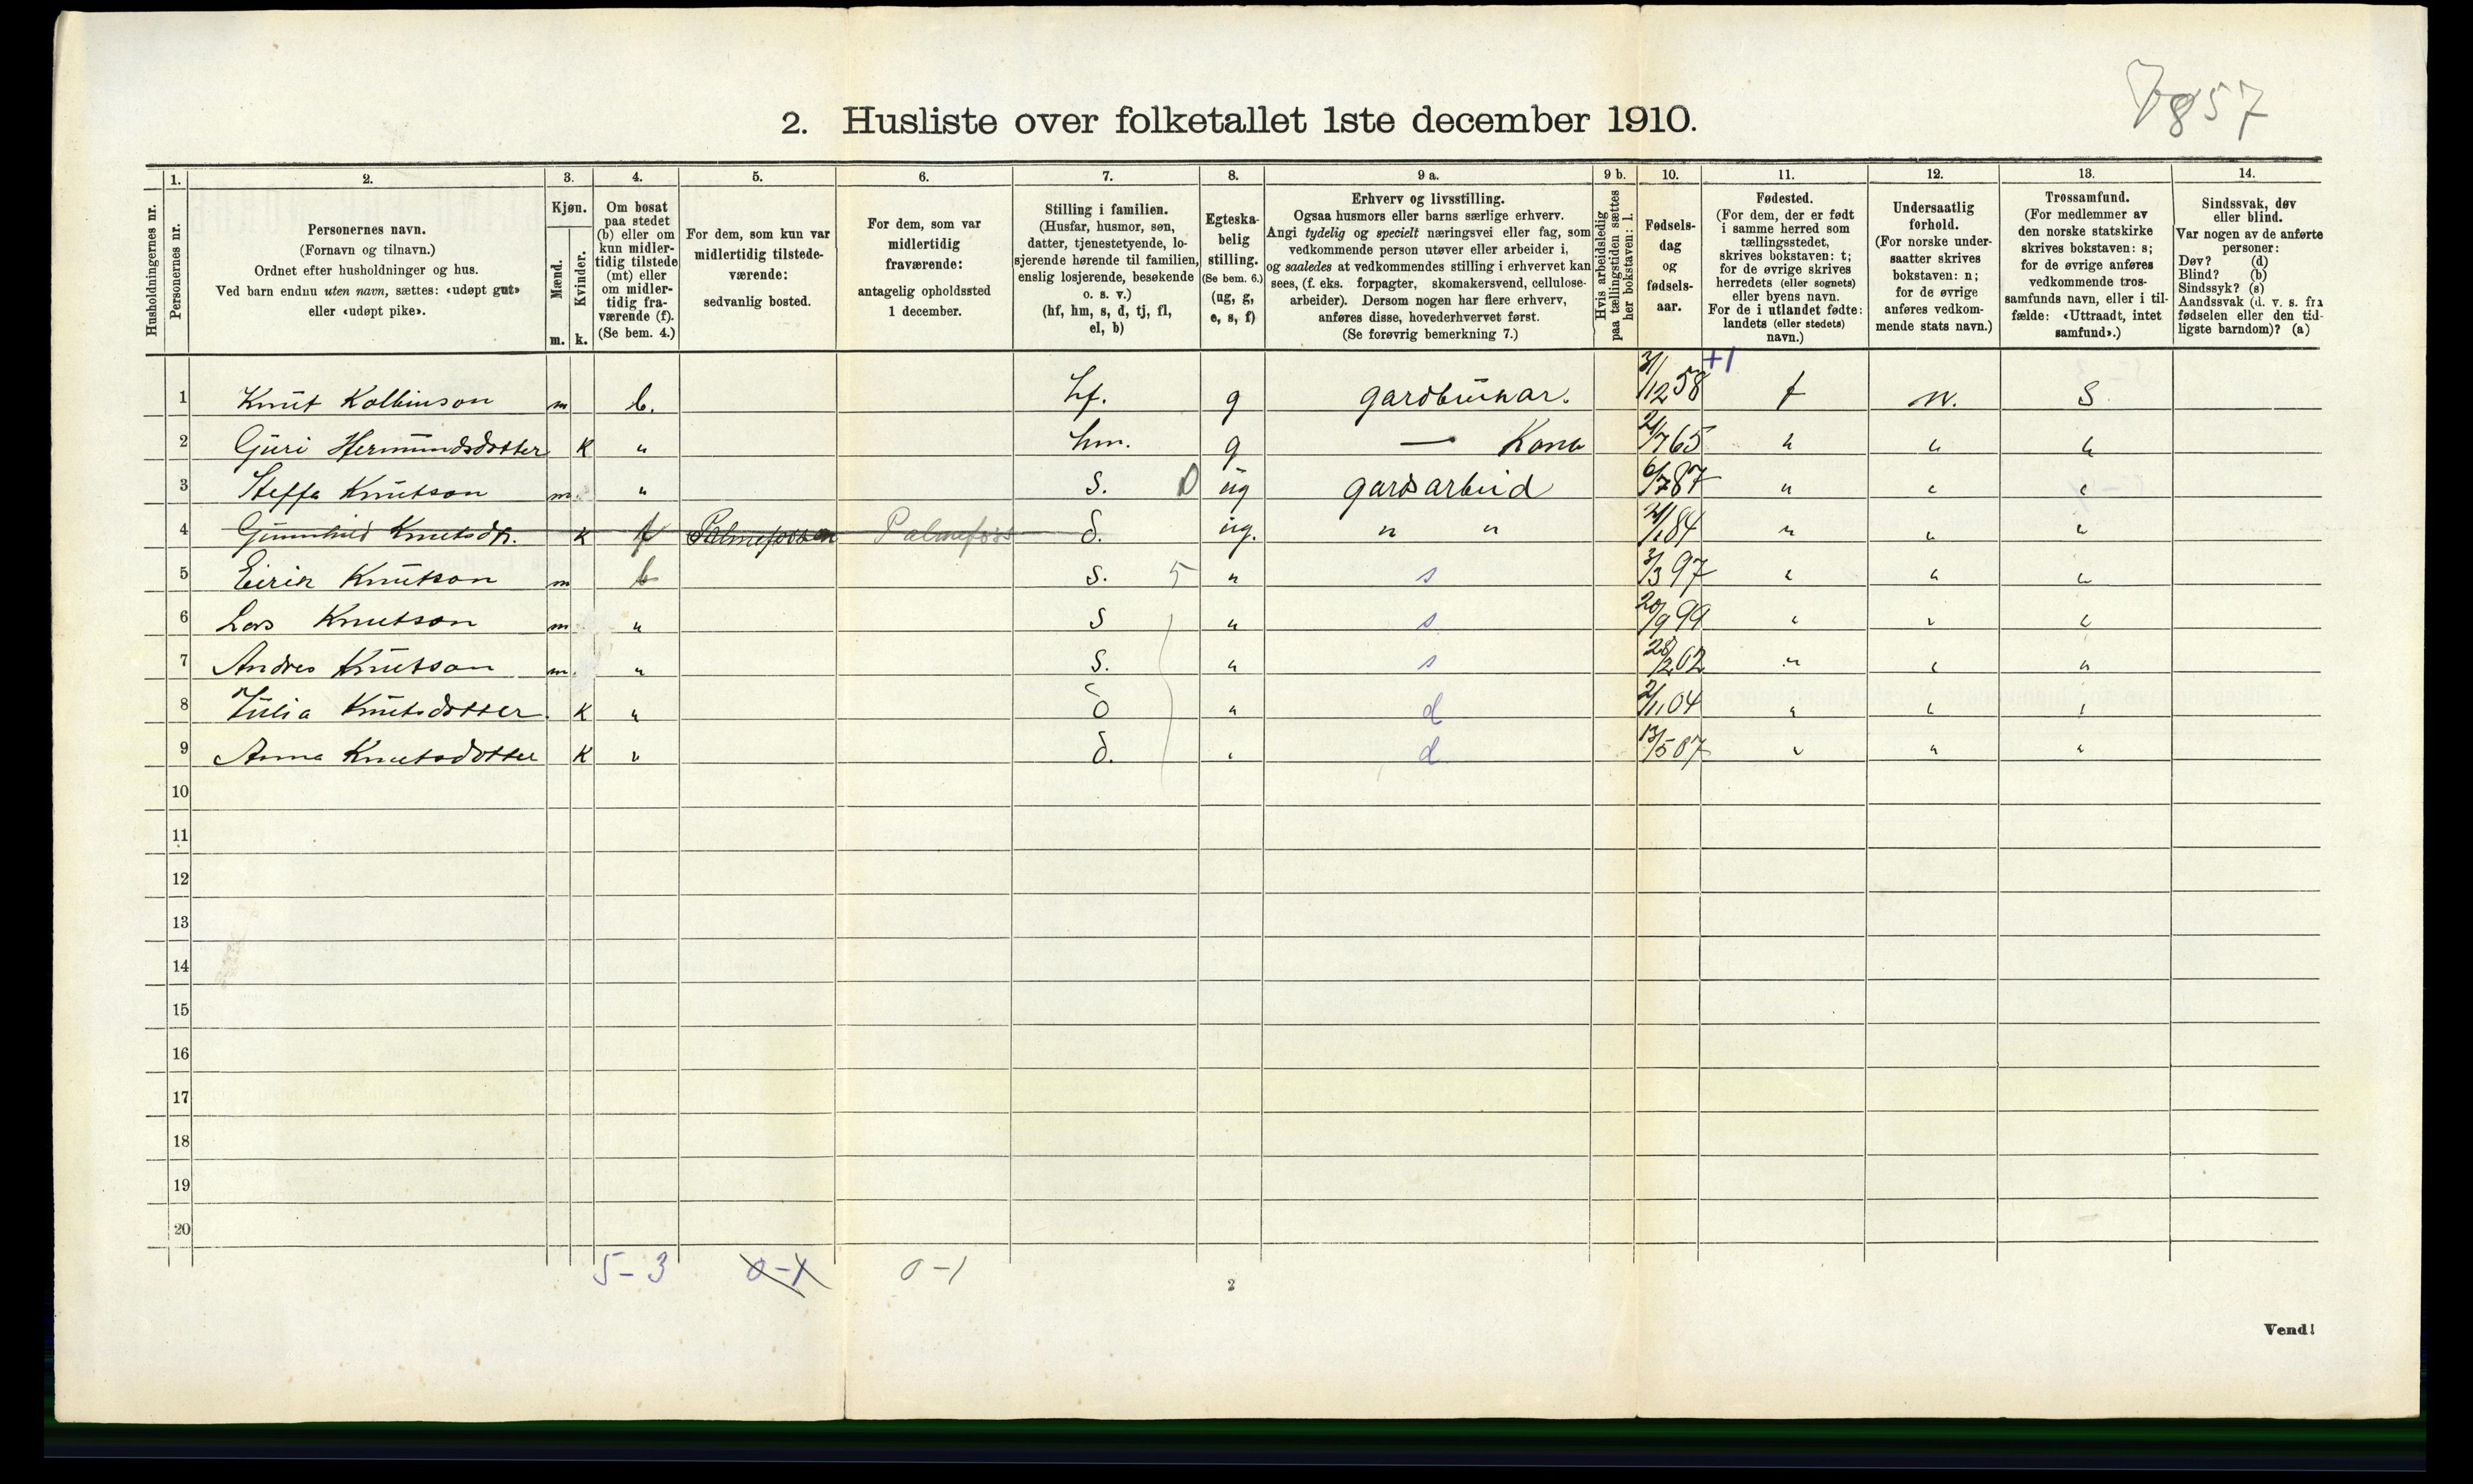 7857
2. Husliste over folketallet 1ste december 1910.
Husholdningernes nr.
1. Personernes nr.
2. Personernes navn.
(Fornavn og tilnavn.)
Ordnet efter husholdninger og hus.
Ved barn endnu uten navn, sættes: «udøpt gut»
eller «udøpt pike».
3. Kjøn.
Mænd. Kvinder.
m. k.
4. Om bosat
paa stedet
(b) eller om
kun midler-
tidig tilstede
(mt) eller
om midler-
tidig fra-
værende (f).
(Se bem. 4.)
5. For dem, som kun var
midlertidig tilstede-
værende:
sedvanlig bosted.
6. For dem, som var
midlertidig
fraværende:
antagelig opholdssted
1 december.
7. Stilling i familien.
(Husfar, husmor, søn,
datter, tjenestetyende, lo-
sjerende hørende til familien,
enslig losjerende, besøkende
o. s. v.)
(hf, hm, s, d, tj, fl,
el, b)
8. Egteska-
belig
stilling.
(Se bem. 6.)
(ug, g,
e, s, f)
9 a. Erhverv og livsstilling.
Ogsaa husmors eller barns særlige erhverv.
Angi tydelig og specielt næringsvei eller fag, som
vedkommende person utøver eller arbeider i,
og saaledes at vedkommendes stilling i erhvervet kan
sees, (f. eks. forpagter, skomakersvend, cellulose-
arbeider). Dersom nogen har flere erhverv,
anføres disse, hovederhvervet først.
(Se forøvrig bemerkning 7.)
9 b. Hvis arbeidsledig
paa tællingstiden sættes
her bokstaven: l.
10. Fødsels-
dag
og
fødsels-
aar.
11. Fødested.
(For dem, der er født
i samme herred som
tællingsstedet,
skrives bokstaven: t;
for de øvrige skrives
herredets (eller sognets)
eller byens navn.
For de i utlandet fødte:
landets (eller stedets)
navn.)
12. Undersaatlig
forhold.
(For norske under-
saatter skrives
bokstaven: n;
for de øvrige
anføres vedkom-
mende stats navn.)
13. Trossamfund.
(For medlemmer av
den norske statskirke
skrives bokstaven: s;
for de øvrige anføres
vedkommende tros-
samfunds navn, eller i til-
fælde: «Uttraadt, intet
samfund».)
14. Sindssvak, døv
eller blind.
Var nogen av de anførte
personer:
Døv? (d)
Blind? (b)
Sindssyk? (s)
Aandssvak (d. v. s. fra
fødselen eller den tid-
ligste barndom)? (a)
+1
1 Knut Kolbinson m b. hf. g gardbrukar. 31/12 58 t n. S
2 Guri Hermundsdotter K " hm. g — Kona 2/7 65 " " "
3 Steffa Knutson m. " S. D ug gardsarbeid 6/7 87 " " "
4 Gunnhild Knutsdr. K f Palmefossen Palmefoss d. ug. " " 84 " " "
5 Eirik Knutson m b S. 5 " s 3/3 97 " " "
6 Lars Knutson m " S " s 20/9 99 " " "
7 Andres Knutson m. " S. " s 28/2 02 " " "
8 Julia Knutsdotter. K " d " d 2/1 04 " " "
9 Anna Knutsdotter K " d. " d 13/5 07 " " "
10
11
12
13
14
15
16
17
18
19
20
5-3 0-1 0-1
2
Vend!